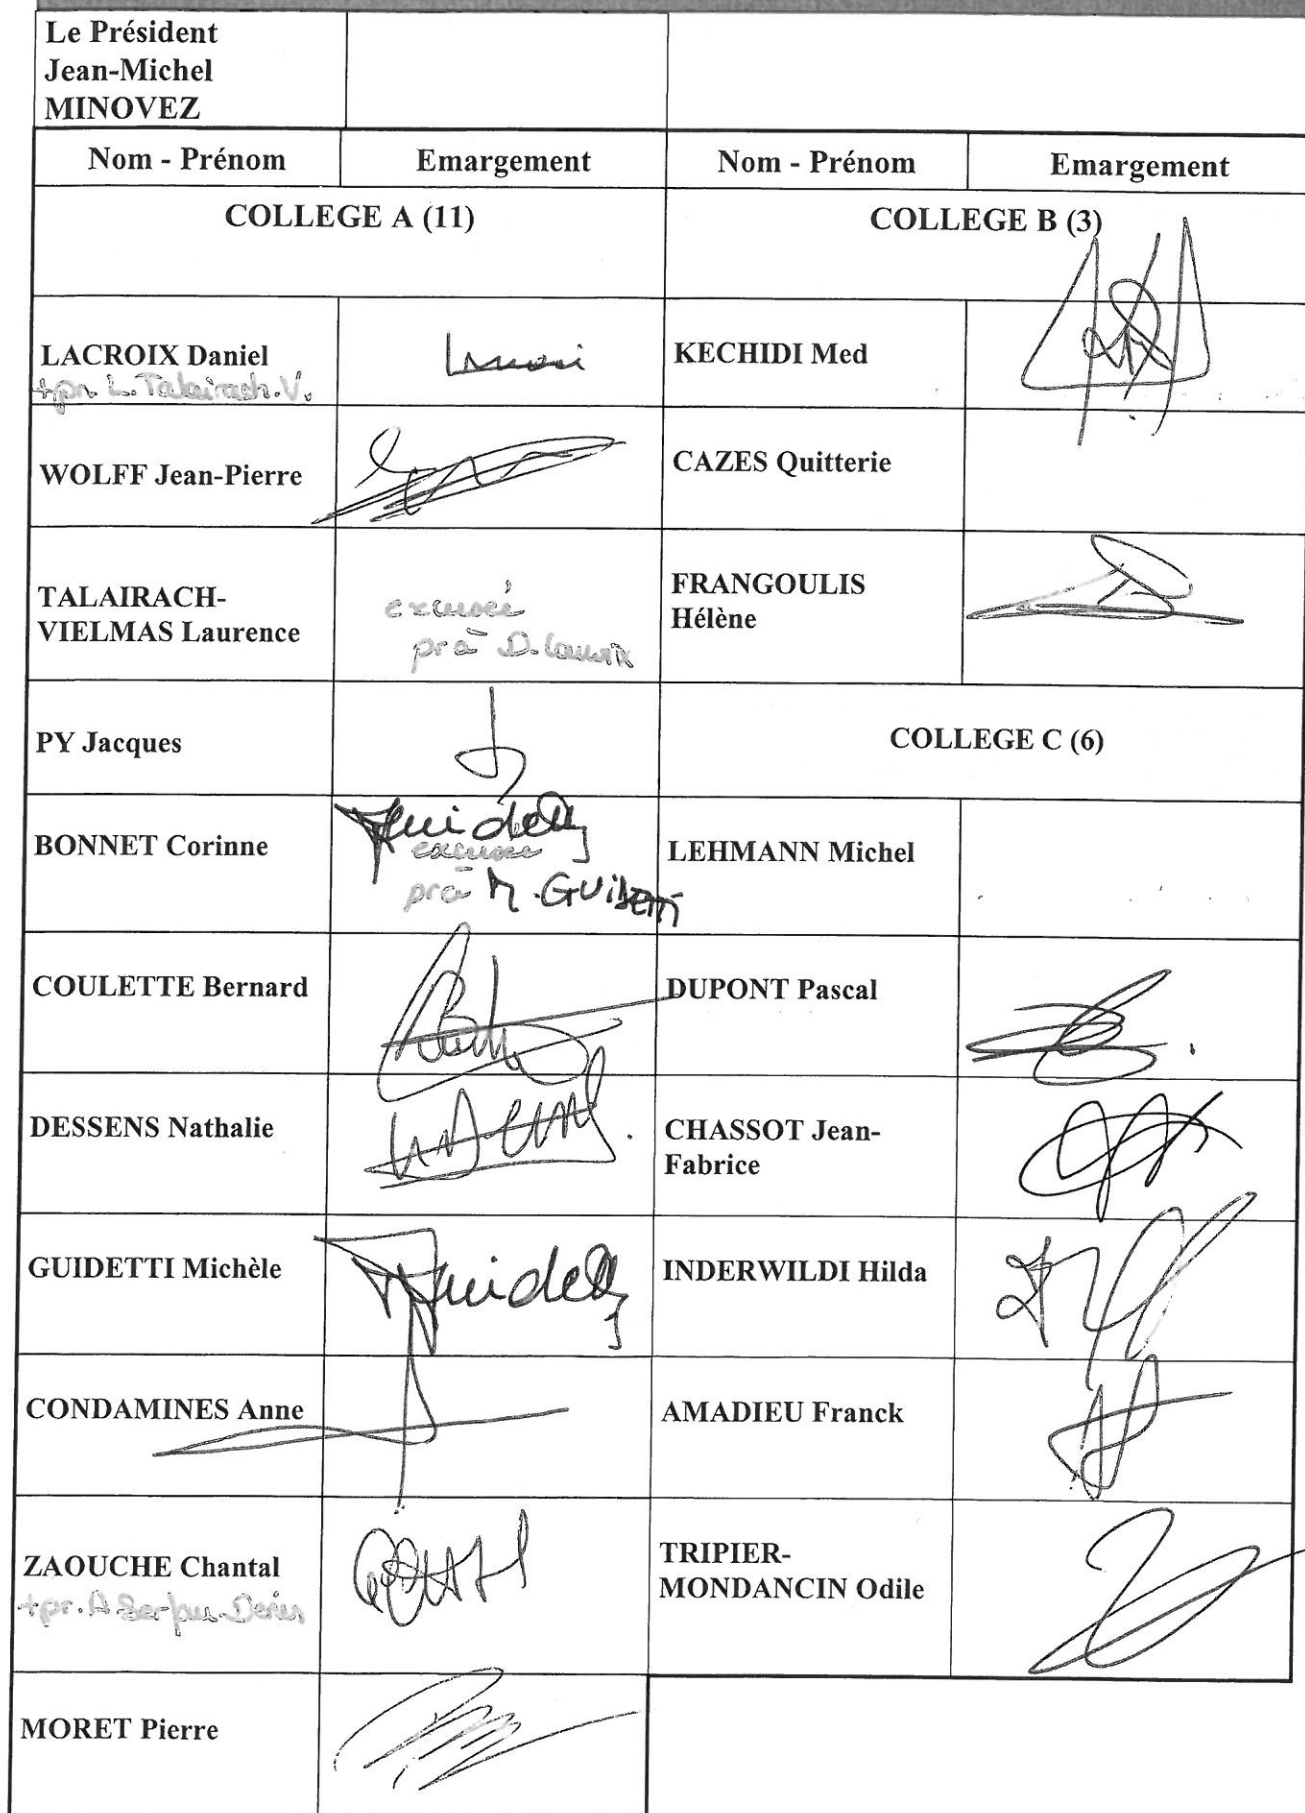 Le Président
Jean-Michel
MINOVEZ
Nom - Prénom
Emargement
Nom - Prénom
Emargement
COLLEGE A (11)
COLLEGE B (3)
LACROIX Daniel
+pr. L. Talairach.V.
KECHIDI Med
WOLFF Jean-Pierre
CAZES Quitterie
TALAIRACH-
VIELMAS Laurence
excusée
pr à D. Lacroix
FRANGOULIS
Hélène
PY Jacques
COLLEGE C (6)
BONNET Corinne
excusée
pr à M. GUIDETTI
LEHMANN Michel
COULETTE Bernard
DUPONT Pascal
DESSENS Nathalie
CHASSOT Jean-
Fabrice
GUIDETTI Michèle
INDERWILDI Hilda
CONDAMINES Anne
AMADIEU Franck
ZAOUCHE Chantal
+pr. A
TRIPIER-
MONDANCIN Odile
MORET Pierre